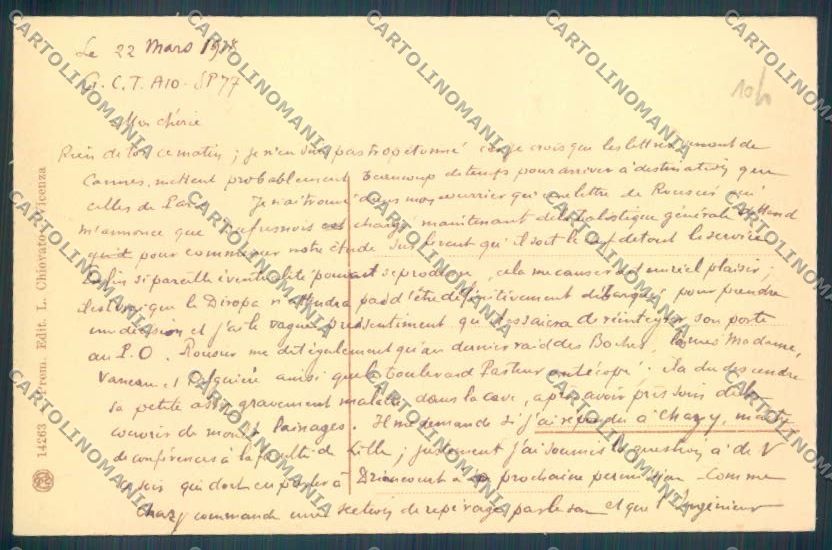 Le 22 Mars 1918
G.C.T. A10 - SP 77
Ma chérie
Rien de toi ce matin ; je n'en suis pas trop étonné car je crois que les lettres venant de
Cannes mettent probablement beaucoup de temps pour arriver à destination que
celles de Paris. Je n'ai trouvé dans mon courrier qu'une lettre de
m'annonce que est chargé maintenant de la balistique générale et attend
pour commencer notre étude sur front qu'il soit le chef de tout le service
si pareille éventualité pouvait se produire, cela me causerait un réel plaisir ;
que le n'attendra pas d'être définitivement débarqué pour prendre
une décision et j'ai le vague pressentiment qu'il essaiera de réintégrer son poste
au P.O. me dit également qu'au dernier raid des Boches, la rue Madame,
Vaneau et ainsi que le boulevard Pasteur ont écopé. Il a dû descendre
sa petite assez gravement malade dans la cave, après avoir pris soin de la
couvrir de . Il me demande si j'ai répondu à Chazy,
de conférences à la faculté de Lille ; justement j'ai soumis la question à de V
ce soir qui doit en parler à Driencourt à sa prochaine permission. Comme
Chazy commande une section de repérage par le son et que l'ingénieur
14263 Prem. Edit. L. Chiovato - Vicenza
10h
CARTOLINOMANIA